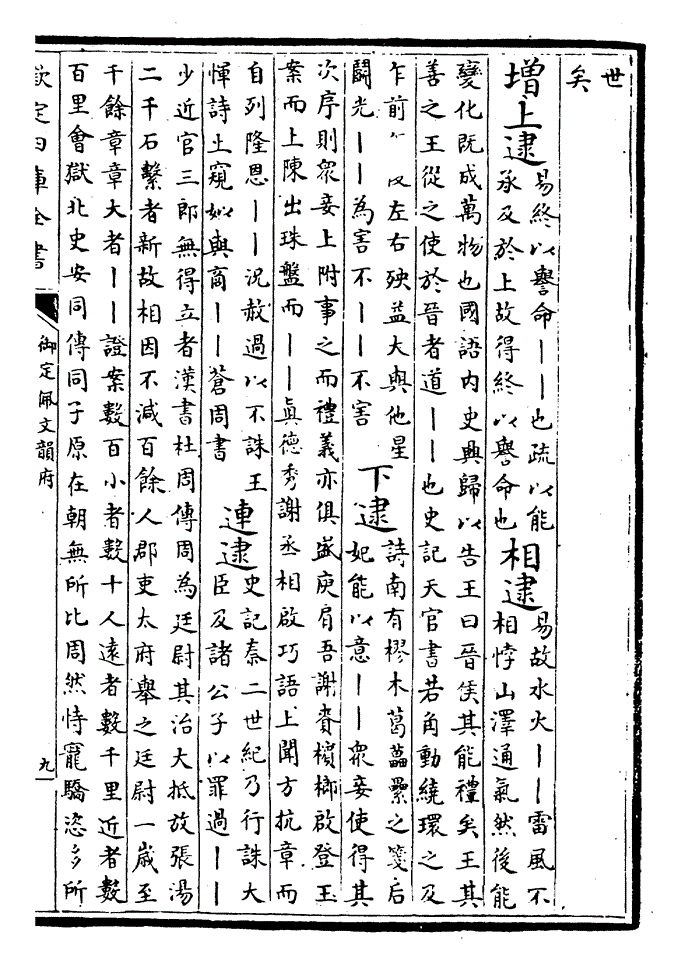 世
矣
增上逮
易終以譽命丨丨也疏以能
承及於上故得終以譽命也
相逮
易故水火丨丨雷風不
相悖山澤通氣然後能
變化既成萬物也國語内史興歸以告王曰晉侯其能禮矣王其
善之王從之使於晉者道丨丨也史記天官書若角動繞環之及
乍前左右殃益大與他星
鬭光丨丨為害不丨丨不害
下逮
詩南有樛木葛藟纍之箋后
妃能以意丨丨衆妾使得其
次序則衆妾上附事之而禮義亦俱盛庾肩吾謝賚檳榔啟登玉
案而上陳出珠盤而丨丨眞德秀謝丞相啟巧語上聞方抗章而
自列隆恩丨丨況赦過以不誅王
惲詩土窺如與商丨丨蒼周書
連逮
史記秦二世紀乃行誅大
臣及諸公子以罪過丨丨
少近官三郎無得立者漢書杜周傳周為廷尉其治大抵放張湯
二千石繫者新故相因不減百餘人郡吏太府舉之廷尉一嵗至
千餘章章大者丨丨證案數百小者數十人遠者數千里近者數
百里會獄北史安同傳同子原在朝無所比周然恃寵驕恣多所
欽定四庫全書
御定佩文韻府
九